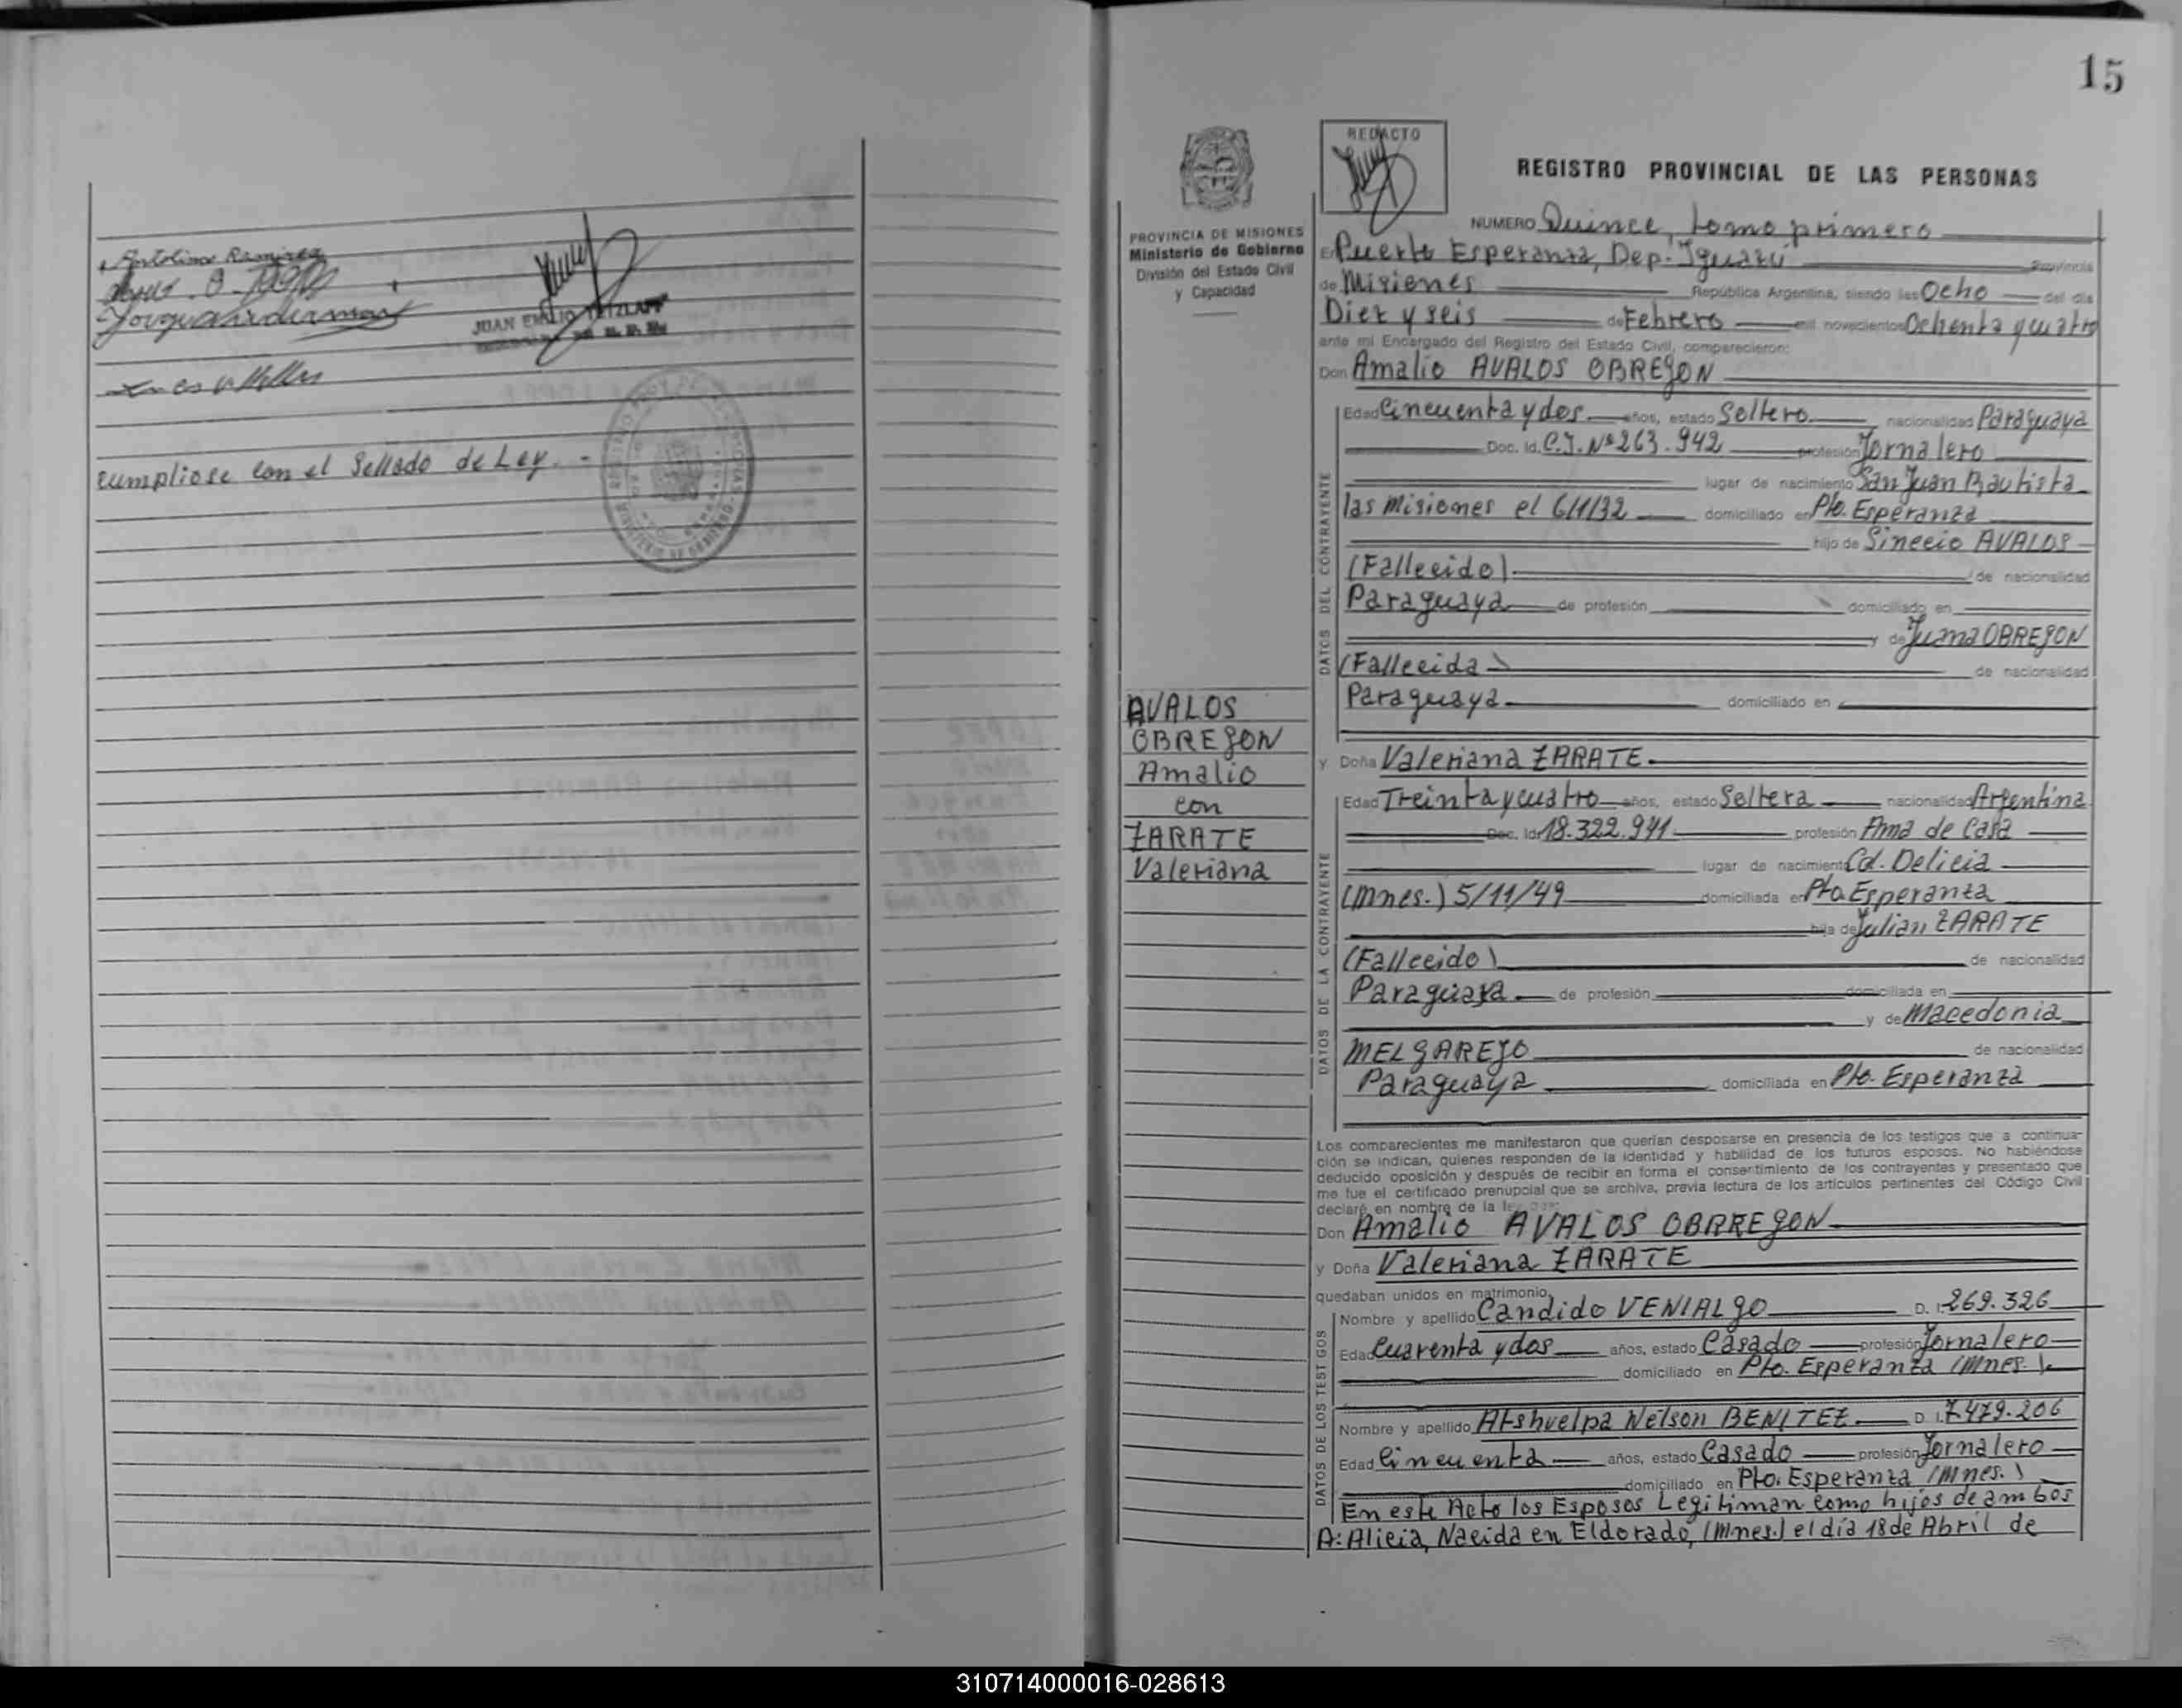 Antolina Ramirez
JUAN EMILIO
cumpliose con el Sellado de Ley. -
15
REDACTO
REGISTRO PROVINCIAL DE LAS PERSONAS
PROVINCIA DE MISIONES
Ministerio de Gobierno
División del Estado Civil
y Capacidad
NUMERO Quince, tomo primero
En Puerto Esperanza, Dep. Iguazú Provincia
de Misiones República Argentina, siendo las Ocho del día
Diez y seis de Febrero mil novecientos Ochenta y cuatro
ante mi Encargado del Registro del Estado Civil, comparecieron:
Don Amalio AVALOS OBREGON
Edad Cincuenta y dos años, estado Soltero nacionalidad Paraguaya
Doc. Id. C.I. Nº 263.942 profesión Jornalero
lugar de nacimiento San Juan Bautista
las Misiones el 6/1/32 domiciliado en Pto. Esperanza
hijo de Sinecio AVALOS
(Fallecido) de nacionalidad
Paraguaya de profesión domiciliado en
y de Juana OBREGON
(Fallecida) de nacionalidad
Paraguaya domiciliado en
DATOS DEL CONTRAYENTE
AVALOS
OBREGON
Amalio
con
ZARATE
Valeriana
y Doña Valeriana ZARATE
Edad Treinta y cuatro años, estado Soltera nacionalidad Argentina
Doc. Id. 18.322.941 profesión Ama de Casa
lugar de nacimiento Col. Delicia
(Mnes.) 5/11/49 domiciliada en Pto. Esperanza
hija de Julian ZARATE
(Fallecido) de nacionalidad
Paraguaya de profesión domiciliada en
y de Macedonia
MELGAREJO de nacionalidad
Paraguaya domiciliada en Pto. Esperanza
DATOS DE LA CONTRAYENTE
Los comparecientes me manifestaron que querían desposarse en presencia de los testigos que a continua-
ción se indican, quienes responden de la identidad y habilidad de los futuros esposos. No habiéndose
deducido oposición y después de recibir en forma el consentimiento de los contrayentes y presentado que
me fue el certificado prenupcial que se archiva, previa lectura de los artículos pertinentes del Código Civil
declaré en nombre de la ley que:
Don Amalio AVALOS OBRREGON
y Doña Valeriana ZARATE
quedaban unidos en matrimonio.
Nombre y apellido Candido VENIALGO D. I. 269.326
Edad Cuarenta y dos años, estado Casado profesión Jornalero
domiciliado en Pto. Esperanza (Mnes.)
Nombre y apellido Atshuelpa Nelson BENITEZ D. I. 7.479.206
Edad Cincuenta años, estado Casado profesión Jornalero
domiciliado en Pto. Esperanza (Mnes.)
DATOS DE LOS TESTIGOS
En este Acto los Esposos Legitiman como hijos de ambos
A: Alicia, Nacida en Eldorado, (Mnes.) el día 18 de Abril de
310714000016-028613